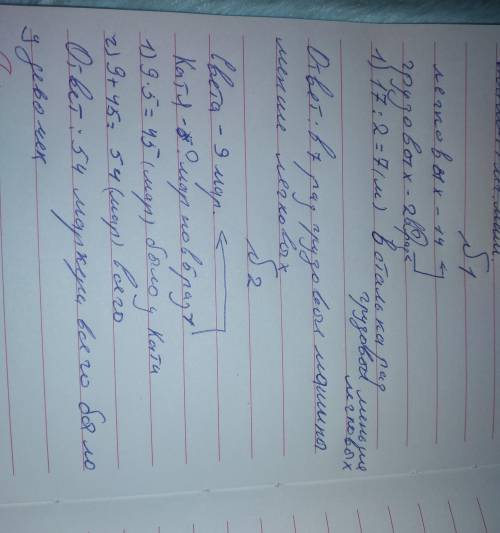 №1
легковых - 14
грузовых - 2
1) 14:2=7(м) в столька раз
грузовой меньше
легковых
Ответ: в 7 раз грузовой машины
меньше легковых
№2
Света - 9 мар.
Катя - ? мар нов 5 раз
1) 9.5=45(мар) было у Кати
2) 9+45=54(мар) всего
Ответ: 54 маркера всего было
у девочек